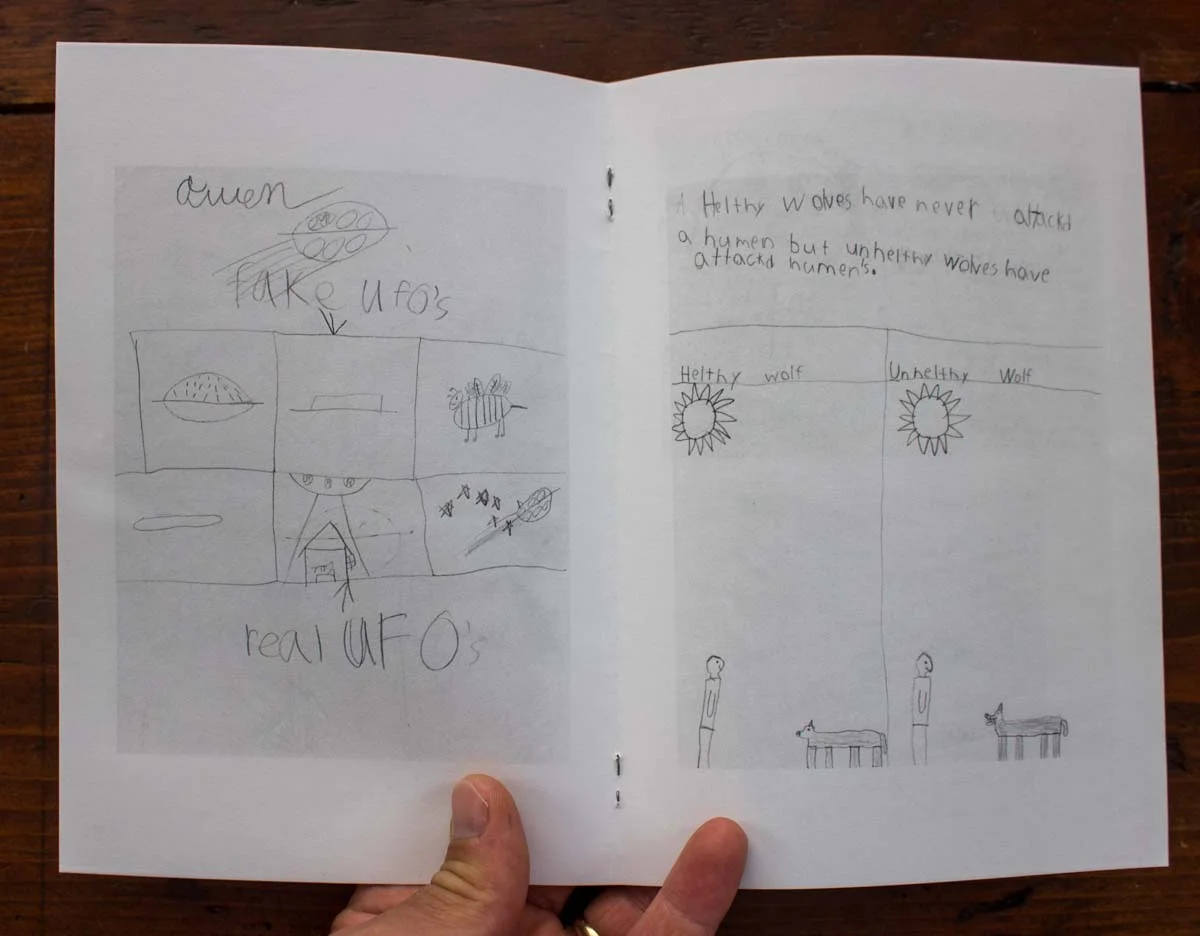 Owen
fake ufo's
real UFO's
Helthy wolves have never attackd
a humen but unhelthy wolves have
attackd humen's.
Helthy wolf
Unhelthy Wolf